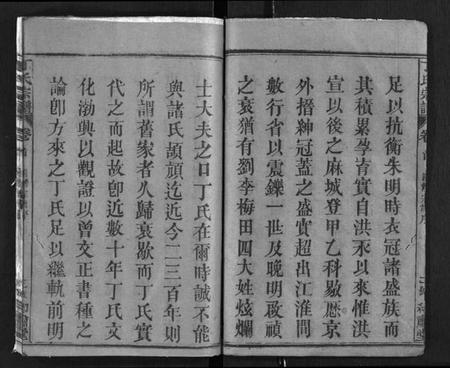 足以抗衡朱明時衣冠諸盛族而
其積累孕育實自洪永以來惟洪
宣以後之麻城登甲乙科歇應京
外搢紳冠蓋之盛實超出江淮間
數行省以震鑠一世及晚明啟禎
之衰猶有劉李梅田四大姓炫爛
士大夫之口丁氏在爾時誠不能
與諸氏頡頏迄近今二三百年則
所謂舊家者久歸衰歇而丁氏實
代之而起故卽近數十年丁氏文
化渤興以觀證以曾文正書種之
論卽方來之丁氏足以繼軌前明